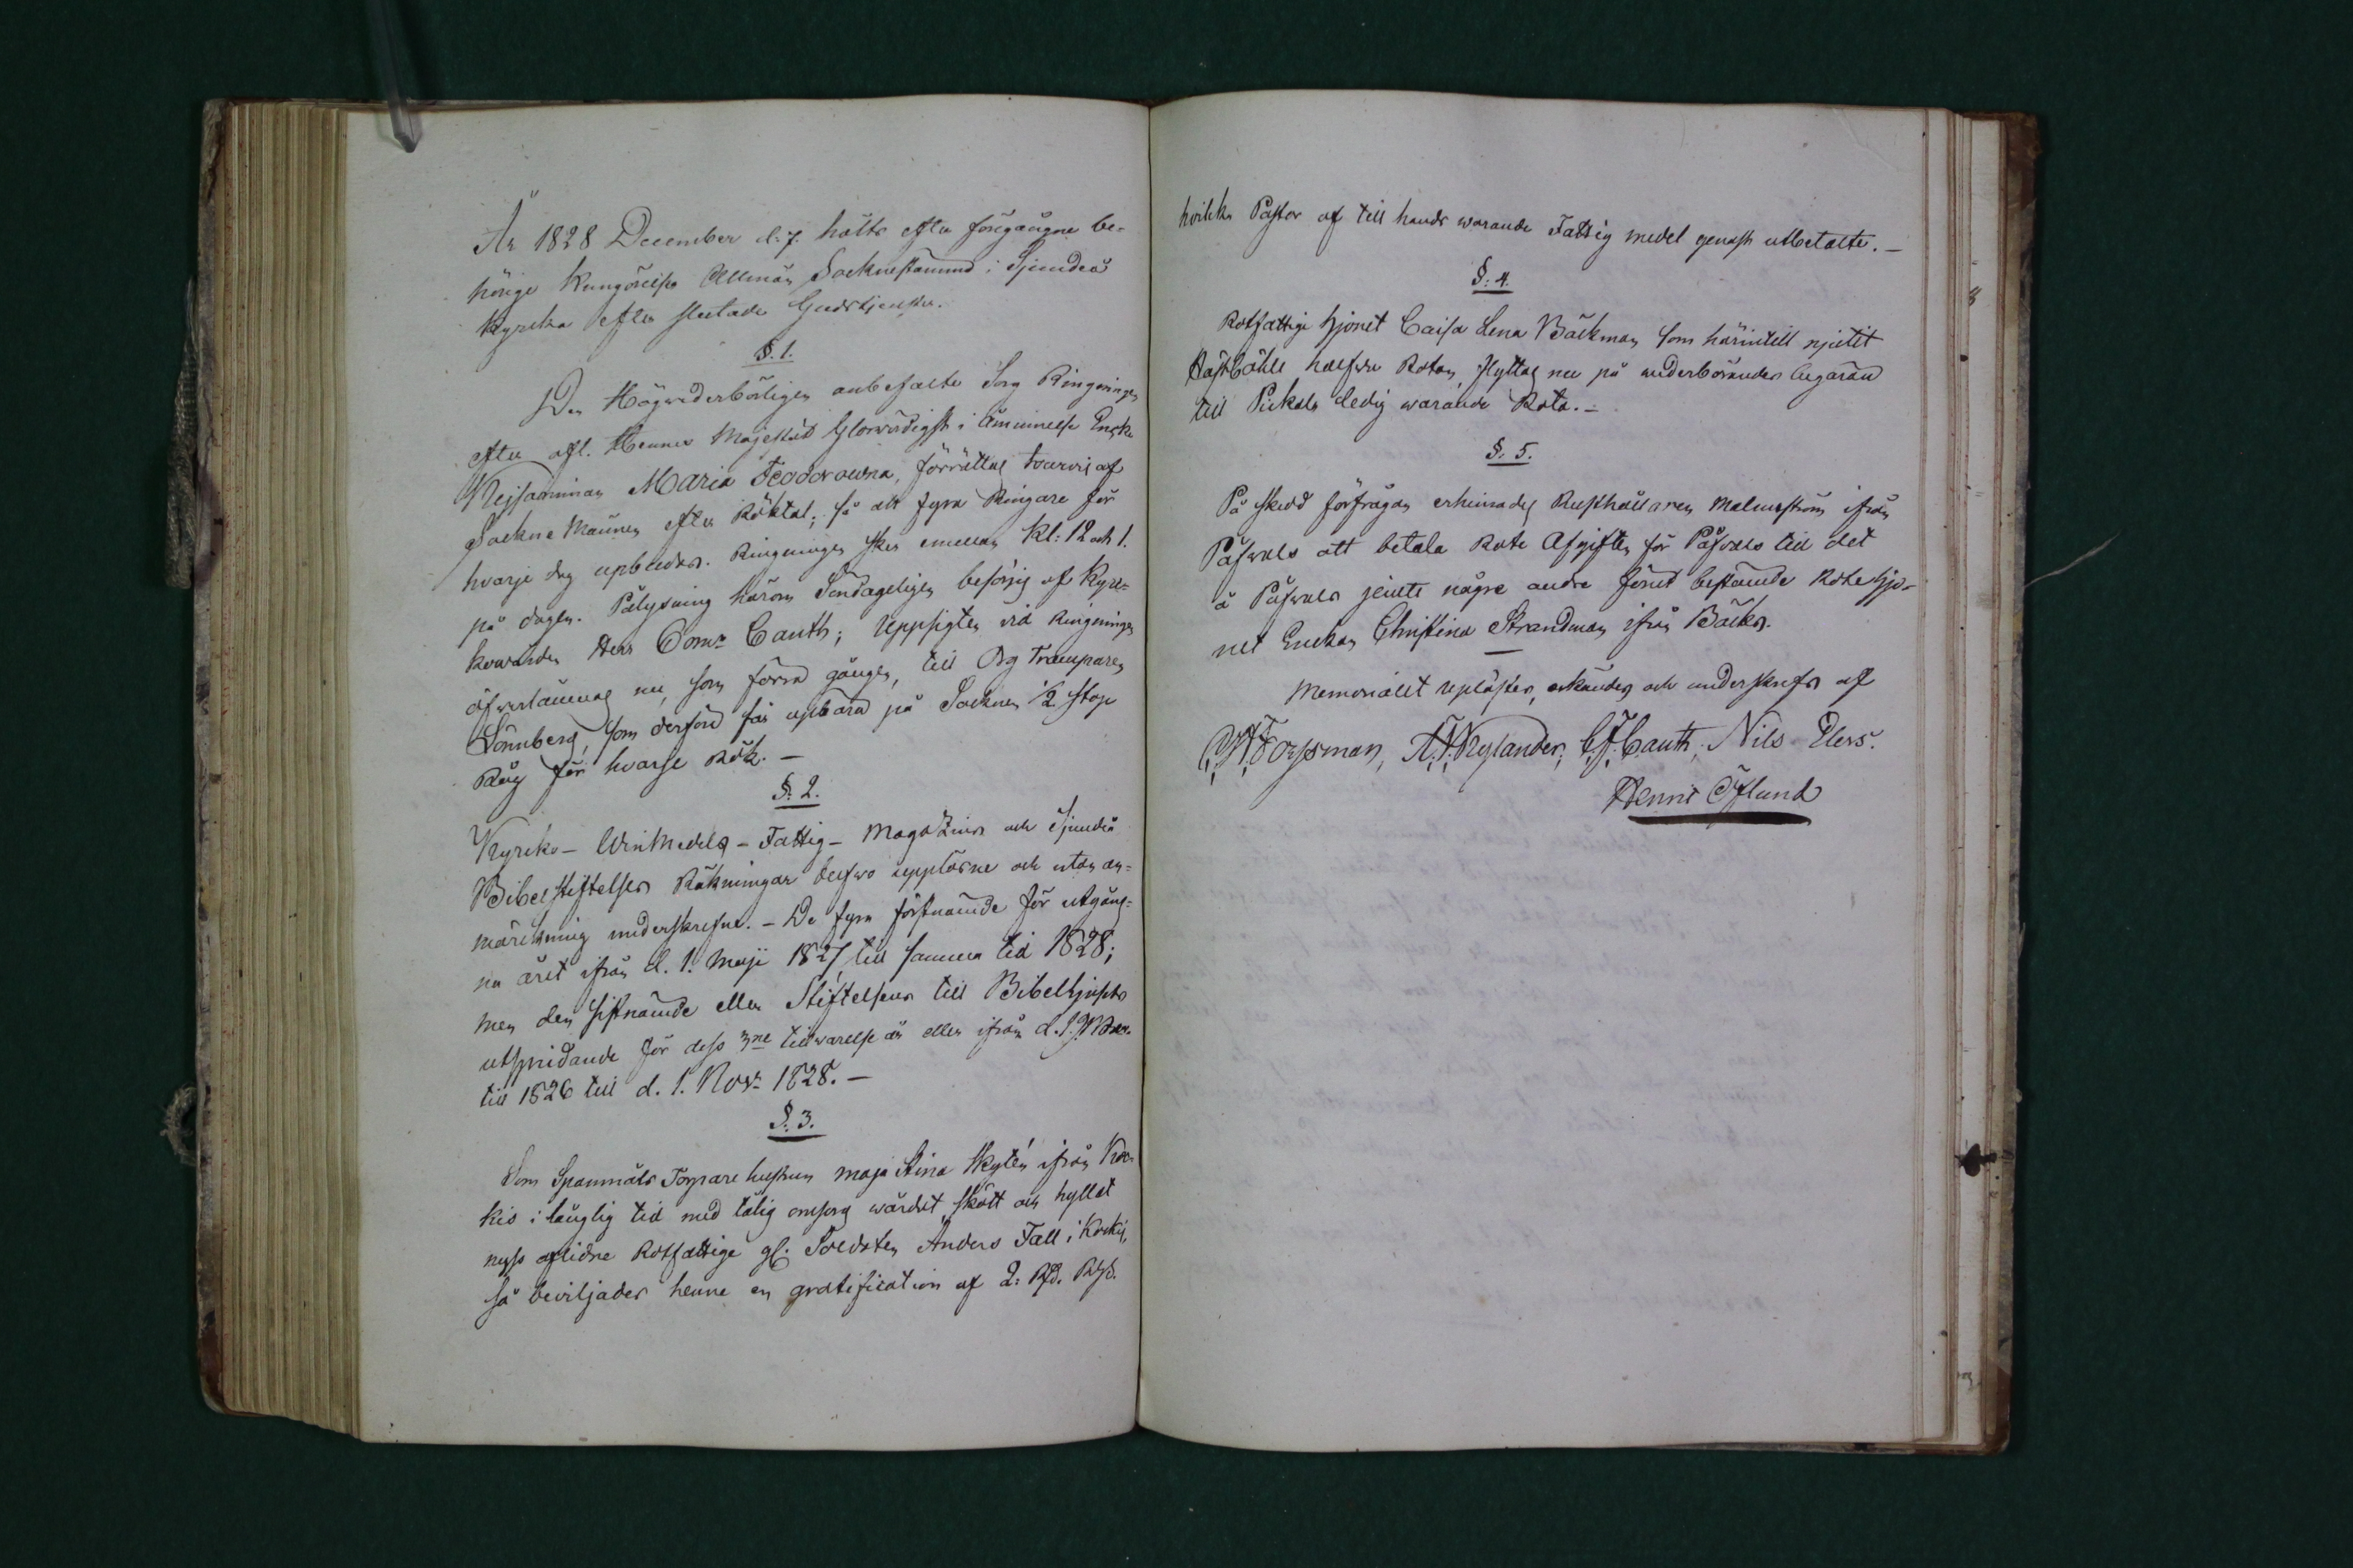 År 1828 December d. 7. hölts efter föregången be-
hörige Kungörelse Allmän Sockne stämma i Sjundeå
Kyrcka efter slutade Gudstjensten.
§. 1.
Den Högvederbörligen anbefalte Sorg Ringningen
efter afl. Hennes Majestät Glorvördigst i åminnelse Enke
Kejsarinnan Maria Feodorowna, förrättas turvis af
Sockne Männen efter Röktal; så att fyra Ringare för
hvarje dag upbudas. Ringningen sker emellan Kl: 12 och 1.
på dagen. Pålysning härom Söndageligen besörjes af Kyrc-
kovärden Herr Com:r Cauth; Uppsigten vid Ringningen
öfverlämnas nu, som förra gången, till Org Tramparen
Lönnberg, som derföre får upbära på Socknen 1/2 stop
Råg för hvarje Rök. —
§. 2.
Kyrcko- WinMedels - Fattig - Magazins och Sjundeå
Bibelstiftelses Räkningar blefvo uppläsne och utan an-
märkning underskrefne. - De fyra förstnämde för utgång-
na året ifrån d. 1. Maji 1827 till samma tid 1828;
men den sistnämde eller Stiftelsens till Bibelljusets
utspridande för dess 3ne tillwarelse år eller ifrån d. 1.
till 1826 till d. 1. Nov:r 1828. —
§. 3.
Som Spannmåls Torpare hustrun Maja Stina Skytén ifrån Koc-
kis i långlig tid med tålig omsorg wårdat, skött och hyllat
nyss aflidne Rotfattige gl. Soldaten Anders Fall i Kockis,
så beviljades henne en gratification af 2: Rd. Rgs.
hvilka Pastor af till hands warande Fattig medel genast utbetalte. —
§. 4.
Rotfattige hjonet Caisa Lena Bäckman som härintill njutit
Hästböhle halfva Rotan, flyttas nu på vederbörandes begäran
till Pickala ledig warande Rota. —
§. 5.
På skedd förfrågan erhinrades Rusthållaren Malmström ifrån
Påfwals att betala Rote Afgiften för Påfvals till det
å Påfwals jemte någre andre förut bestämde Rotehjo-
net Enckan Christina Strandman ifrån Bäcks.
Memorialet uplästes, erkändes och underskrefs af
C.W. Forssman, A.F. Nylander, C.F. Cauth, Nils Elers.
Henric Öflund